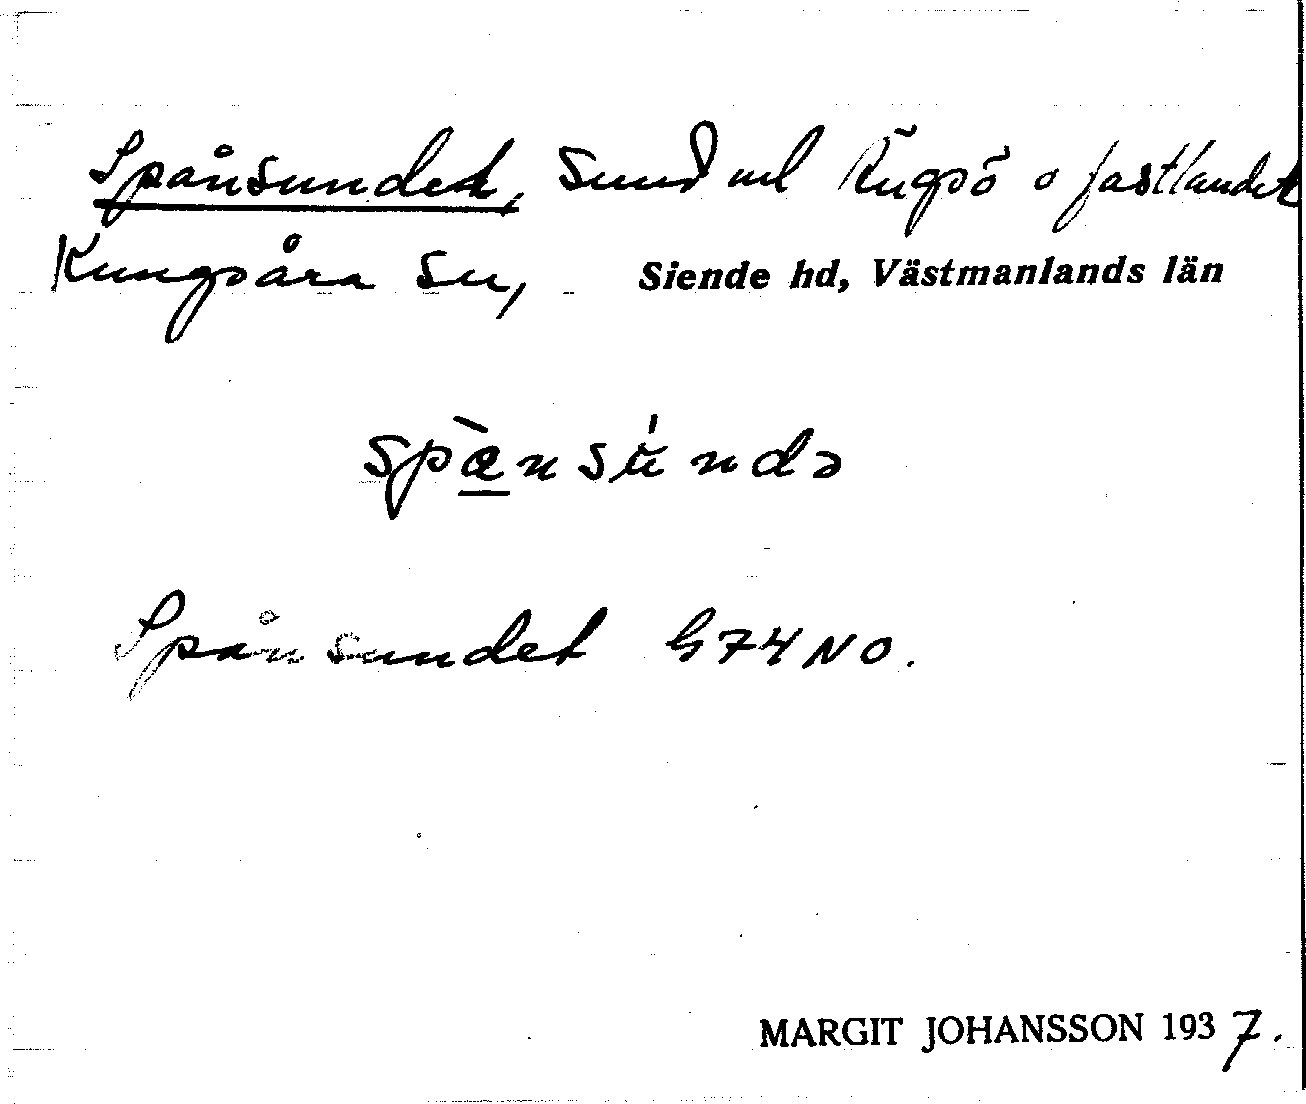 Spånsundet, Sund ml Ängsö o fastlandet
Kungsåra sn, Siende hd, Västmanlands län
spànsúndə
Spånsundet G74NO.
MARGIT JOHANSSON 1937.